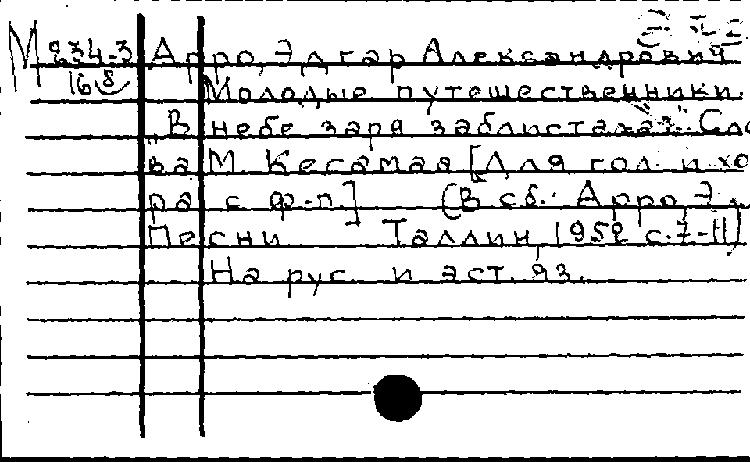 М 834-3 Арро, Эдгар Александрович
16(8) Молодые путешественники.
„В небе заря заблистала“. Сло
ва М. Кесамаа [Для гол. и хо
ра с ф-п.] (В сб.: Арро, Э.
Песни Таллин, 1952 с. 7-11)
На рус. и эст. яз.